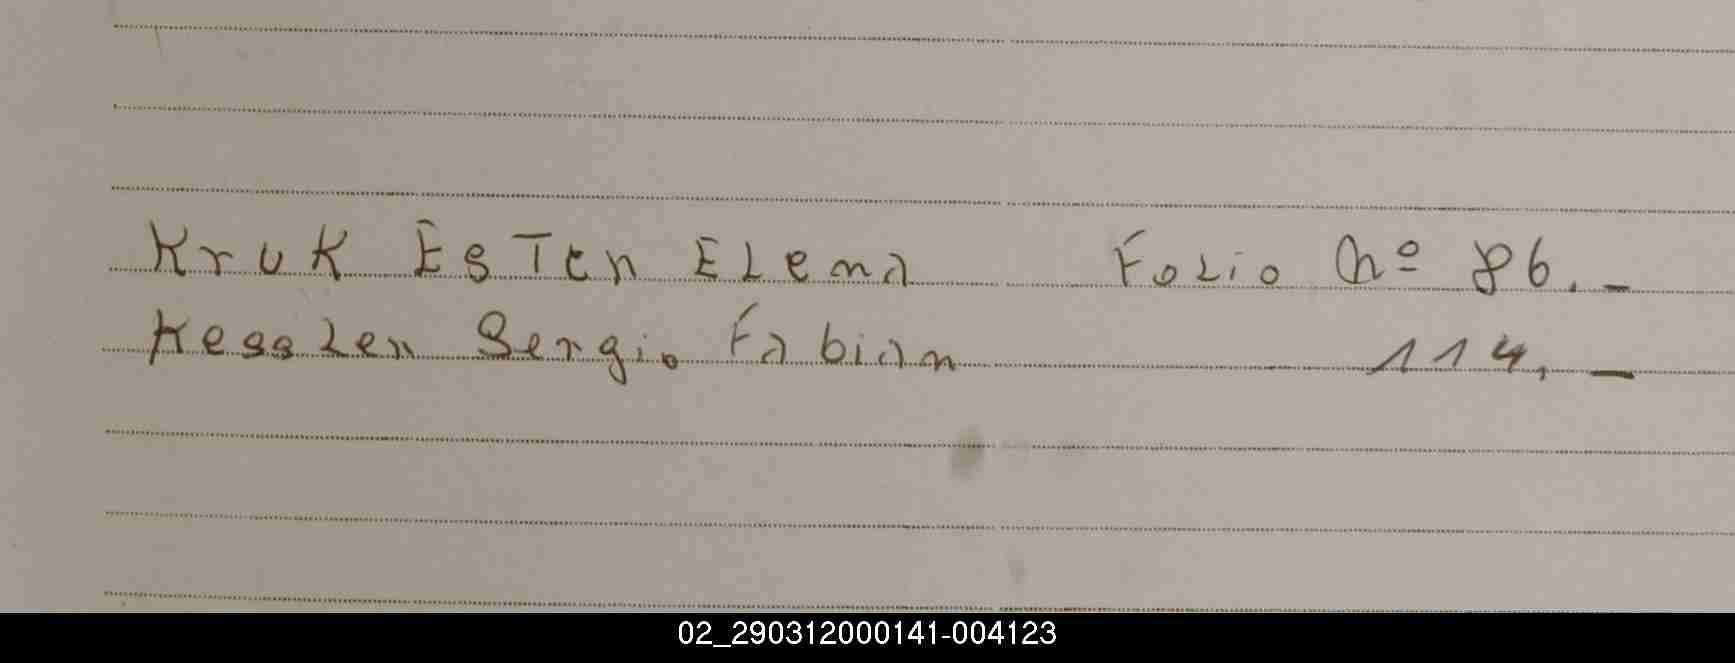 Kruk Ester Elena Folio Nº 86.-
Kessler Sergio Fabian 114.-
02_290312000141-004123